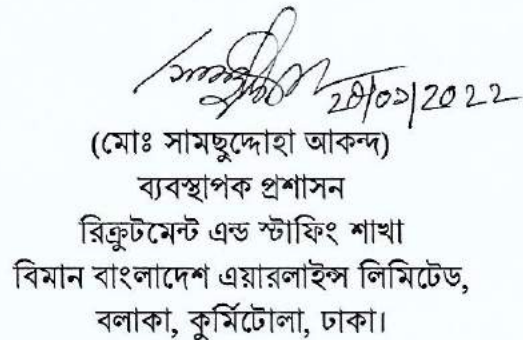 ২৫/০১/2022
(মোঃ সামছুদ্দোহা আকন্দ)
ব্যবস্থাপক প্রশাসন
রিক্রুটমেন্ট এন্ড স্টাফিং শাখা
বিমান বাংলাদেশ এয়ারলাইন্স লিমিটেড,
বলাকা, কুর্মিটোলা, ঢাকা।